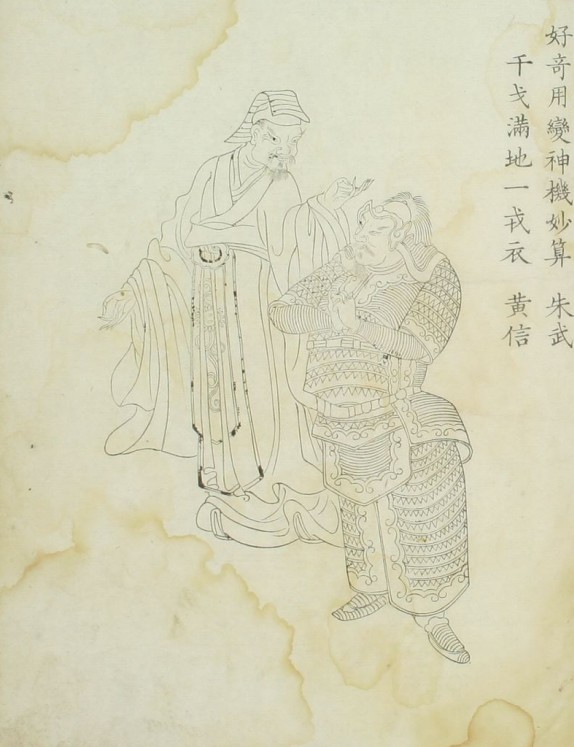 好奇用變神機妙算 朱武
干戈滿地一戎衣 黄信